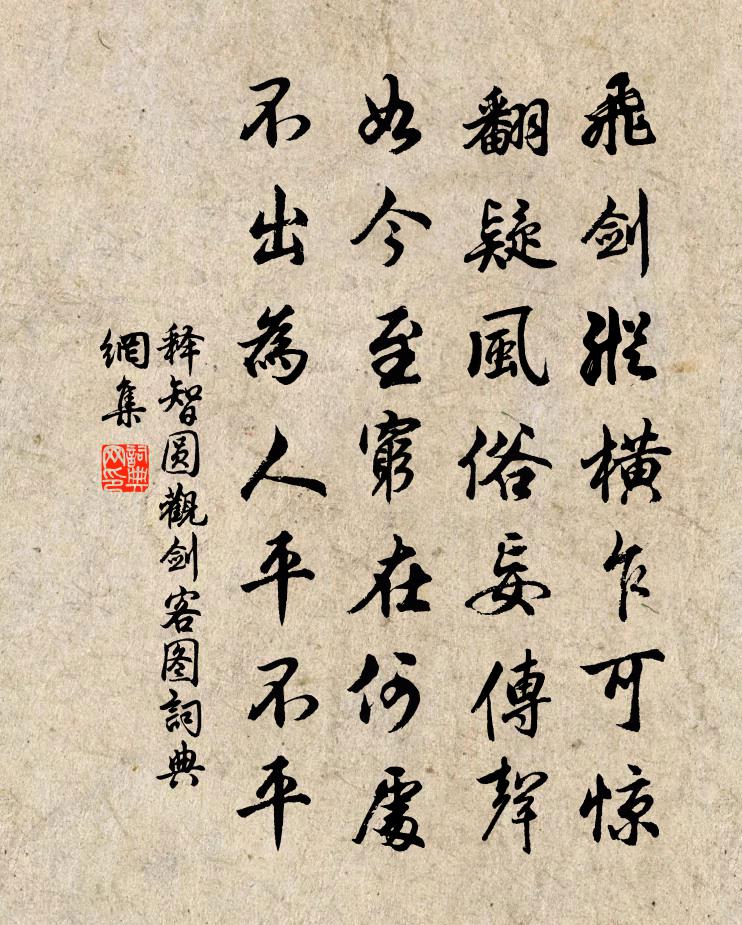 飛劍縱橫乍可惊
翻疑風俗妄傳聲
如今至窮在何處
不出為人平不平
释智圆觀剑客图詞典
網集
詞典
网印